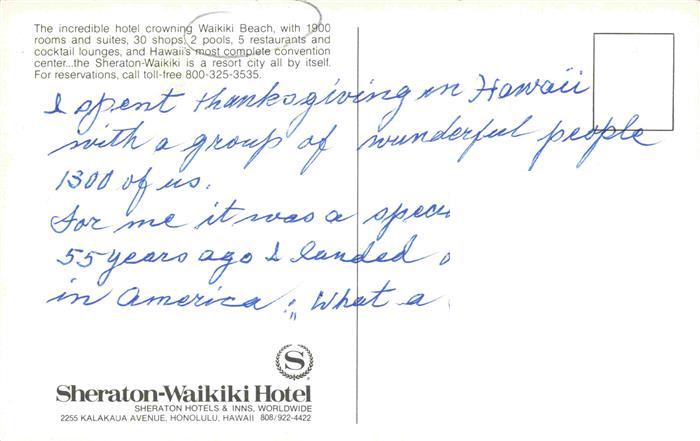 The incredible hotel crowning Waikiki Beach, with 1900
rooms and suites, 30 shops, 2 pools, 5 restaurants and
cocktail lounges, and Hawaii's most complete convention
center...the Sheraton-Waikiki is a resort city all by itself.
For reservations, call toll-free 800-325-3535.
I spent thanksgiving in Hawaii
with a group of wunderful people
1300 of us.
For me it was a
55 years ago I landed
in America. What a
S
Sheraton-Waikiki Hotel
SHERATON HOTELS & INNS, WORLDWIDE
2255 KALAKAUA AVENUE, HONOLULU, HAWAII 808/922-4422